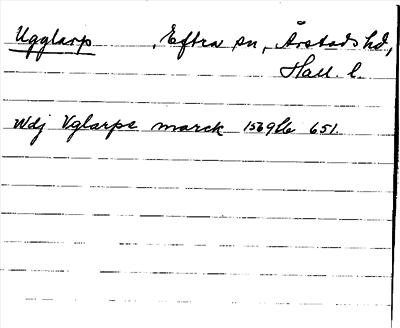 Ugglarp , Eftra sn, Årstads hd,
Hall. l.
wdj Vglarps marck 1569 hh 651.